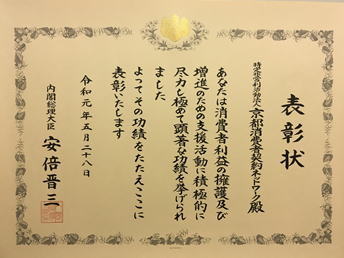 表彰状
特定非営利活動法人京都消費者契約ネットワーク殿
あなたは消費者利益の擁護及び
増進のための支援活動に積極的に
尽力し極めて顕著な功績を挙げられ
ました
よってその功績をたたえここに
表彰いたします
令和元年五月二十八日
内閣総理大臣 安倍晋三